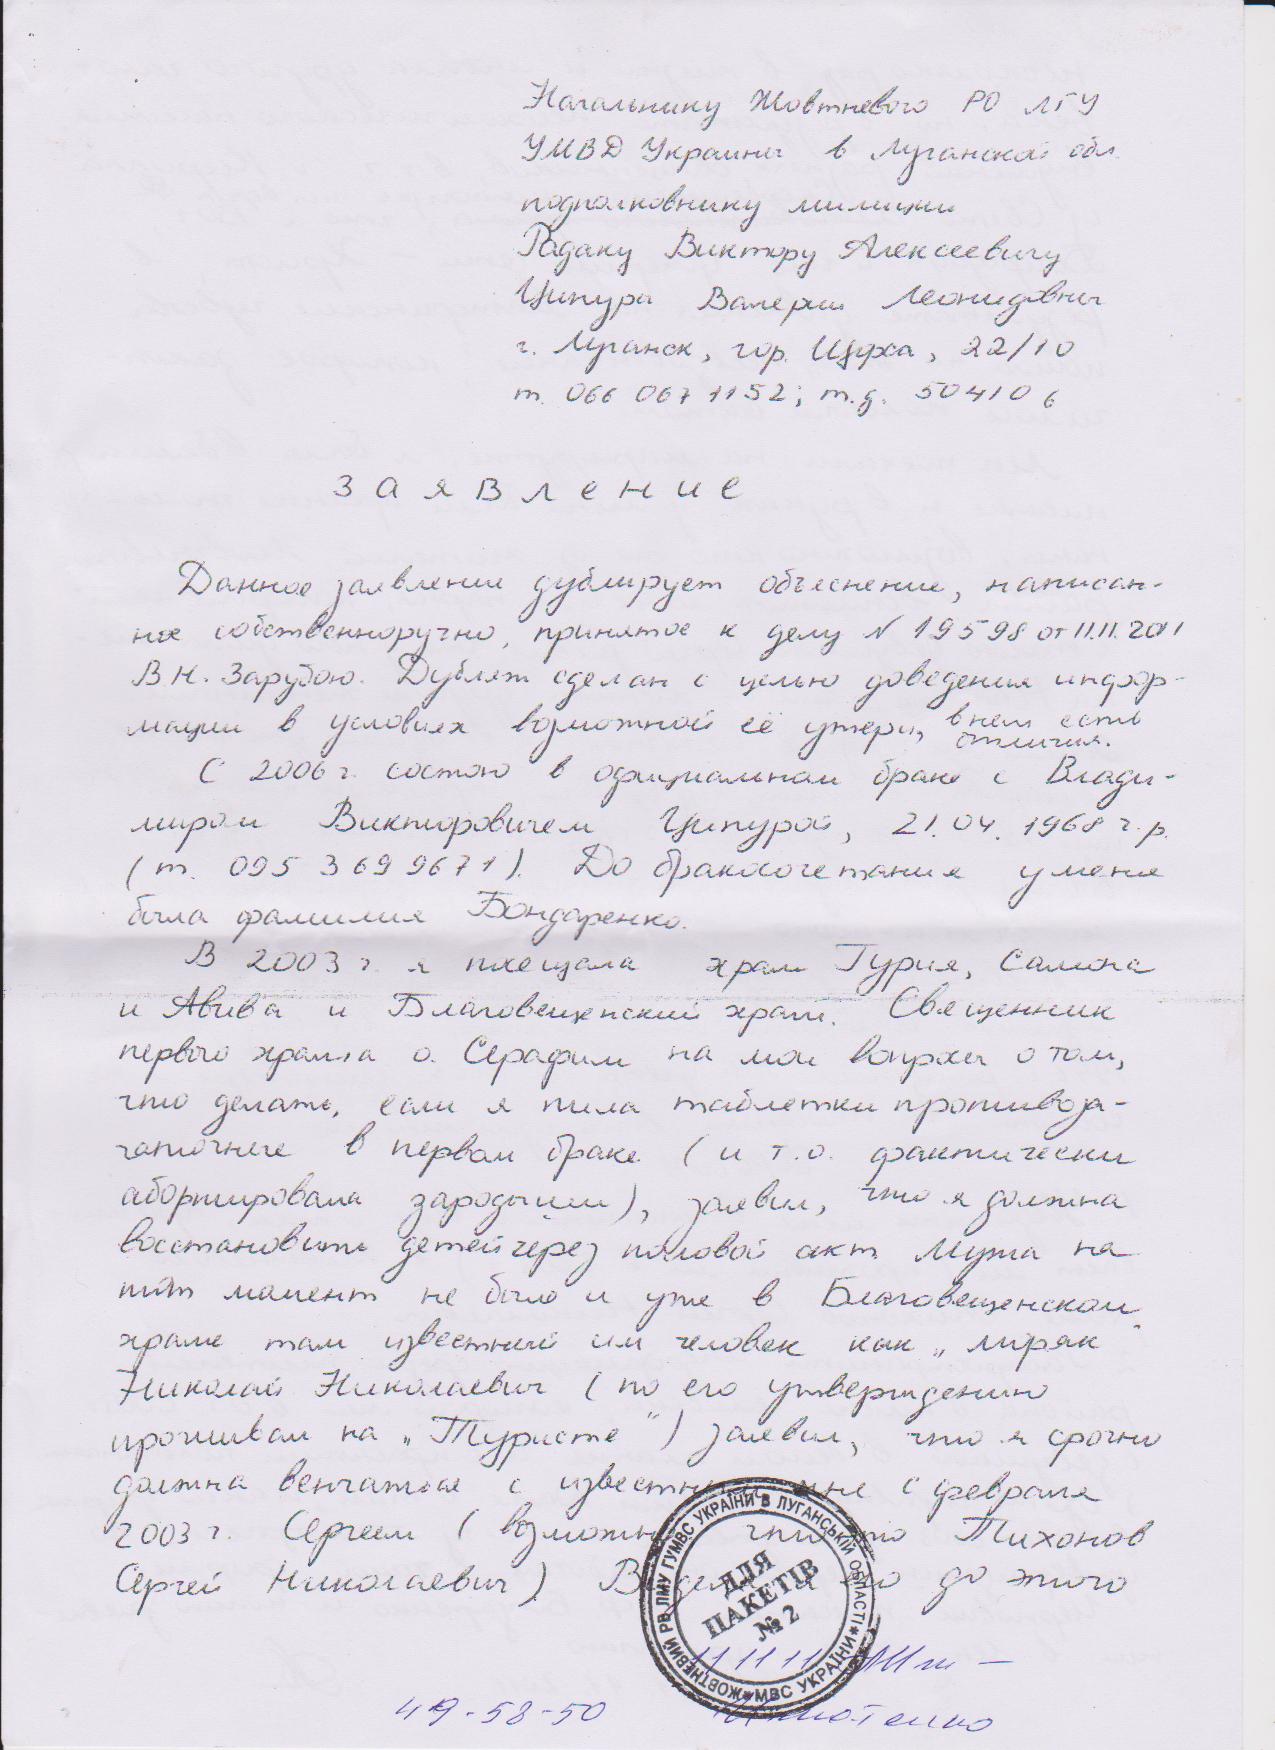 Начальнику Жовтневого РО ЛГУ
УМВД Украины в Луганской обл.
подполковнику милиции
Радаку Виктору Алексеевичу
Ципуры Валерии Леонидовны
г. Луганск, гор. Щорса, 22/10
т. 066 067 1152; т.д. 504106
заявление
Данное заявление дублирует объяснение, написан-
ное собственноручно, принятое к делу N 19598 от 11.11.2011
В.Н. Зарубою. Дубляж сделан с целью доведения инфор-
мации в условиях возможной её утери, в нем есть
отличия.
С 2006 г. состою в официальном браке с Влади-
миром Викторовичем Ципурой, 21.04.1968 г.р.
(т. 095 3699671). До бракосочетания у меня
была фамилия Бондаренко.
В 2003 г. я посещала храм Гурия, Самона
и Авива и Благовещенский храм. Священник
первого храма о. Серафим на мои вопросы о том,
что делать, если я пила таблетки противоза-
чаточные в первом браке (и т.о. фактически
абортировала зародыши), заявил, что я должна
восстановить детей через половой акт. Мужа на
тот момент не было и уже в Благовещенском
храме там известный им человек как „миряк"
Николай Николаевич (по его утверждению
проживал на „Туристе") заявил, что я срочно
должна венчаться с известным мне с февраля
2003 г. Сергеем (возможно что это Тихонов
Сергей Николаевич). Видела я его до этого
ЖОВТНЕВИЙ РВ ЛМУ ГУМВС УКРАЇНИ В ЛУГАНСЬКІЙ ОБЛАСТІ * МВС УКРАЇНИ *
ДЛЯ
ПАКЕТІВ
№ 2
11 11 11
49-58-50